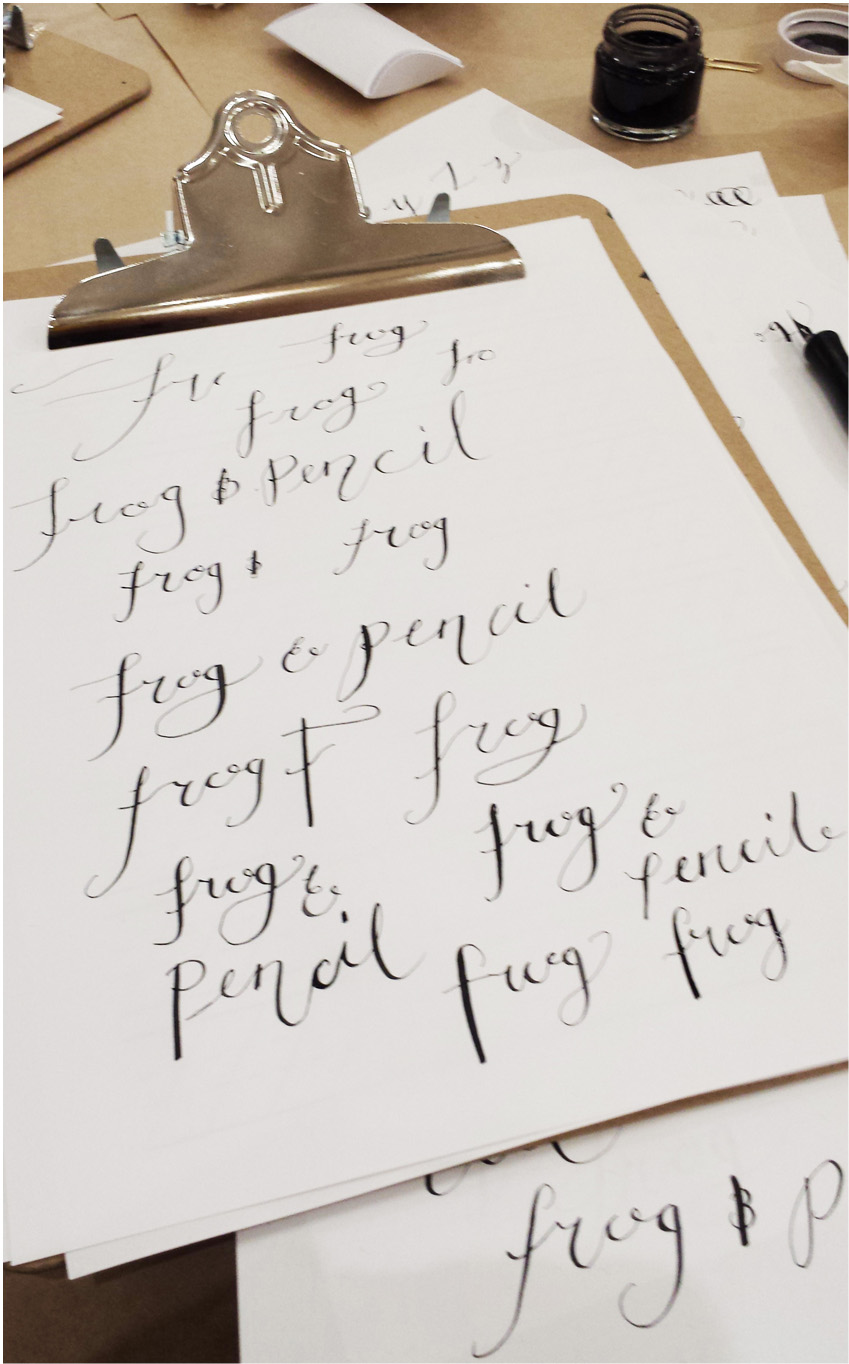 frog
fr fro
frog
frog & pencil
frog & frog
frog & pencil
frog f frog
frog & frog &
pencil pencil
frog frog
frog & p